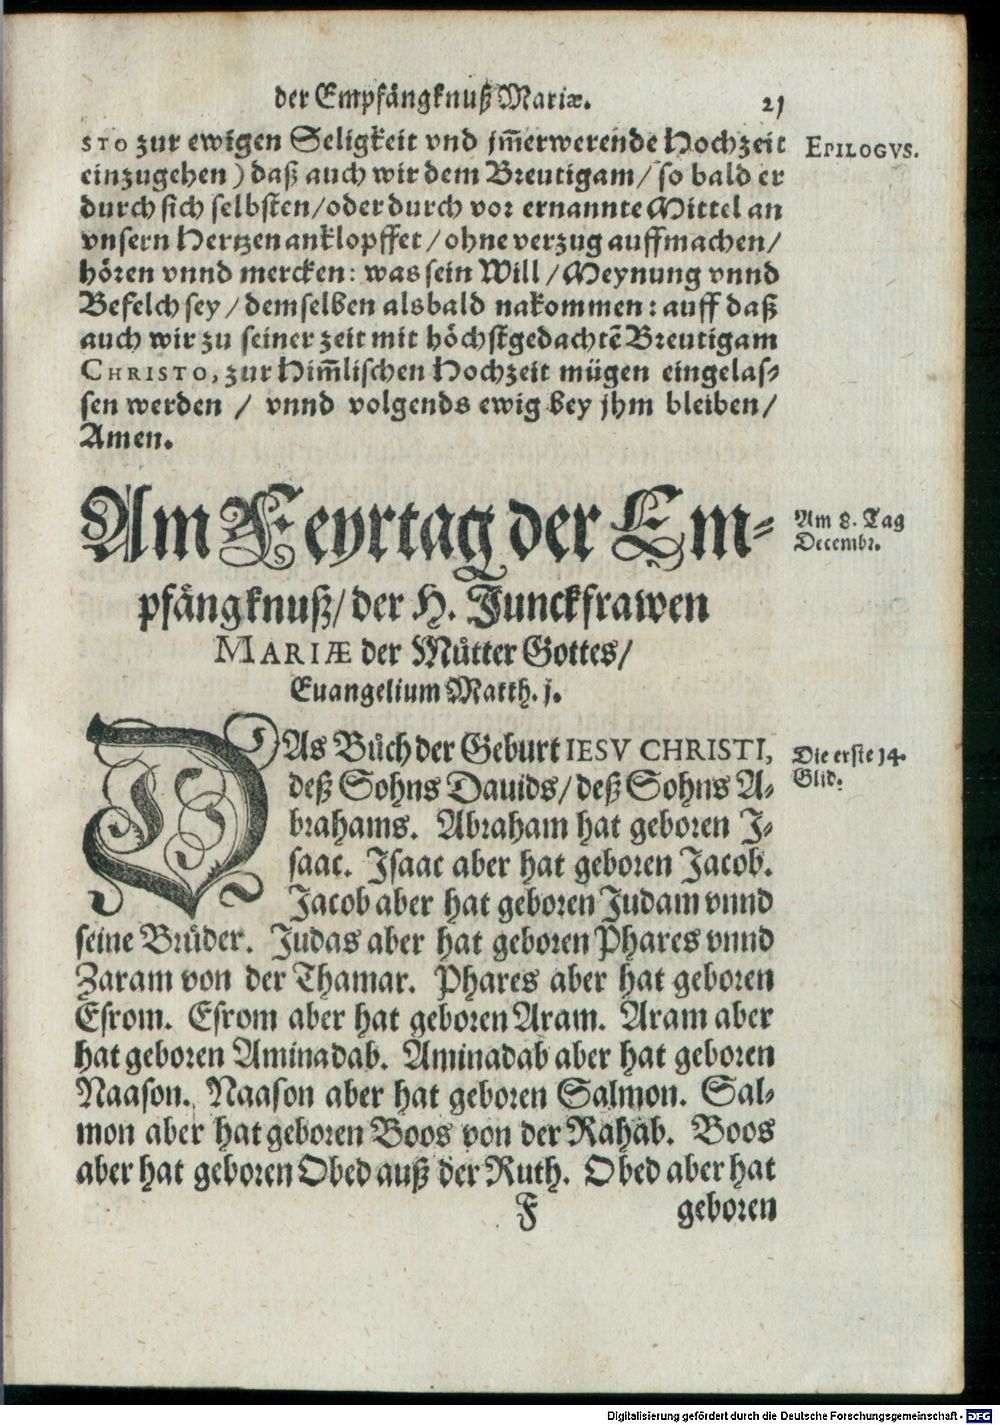 der Empfängknuß Mariæ. 21
STO zur ewigen Seligkeit vnd jm̅erwerende Hochzeit
EPILOGVS.
einzugehen) daß auch wir dem Breutigam/ so bald er
durch sich selbsten/ oder durch vor ernannte Mittel an
vnsern Hertzen anklopffet/ ohne verzug auffmachen/
hören vnnd mercken: was sein Will/ Meynung vnnd
Befelch sey/ demselben alsbald nakommen: auff daß
auch wir zu seiner zeit mit höchstgedachtē Breutigam
CHRISTO, zur Him̅lischen Hochzeit mügen eingelas-
sen werden / vnnd volgends ewig bey jhm bleiben/
Amen.
Am Feyrtag der Em-
Am 8. Tag
Decembr.
pfängknuß/ der H. Junckfrawen
MARIÆ der Můtter Gottes/
Euangelium Matth. j.
DAs Bůch der Geburt IESV CHRISTI,
Die erste 14.
Glid.
deß Sohns Dauids/ deß Sohns A-
brahams. Abraham hat geboren I-
saac. Isaac aber hat geboren Jacob.
Jacob aber hat geboren Judam vnnd
seine Brüder. Judas aber hat geboren Phares vnnd
Zaram von der Thamar. Phares aber hat geboren
Esrom. Esrom aber hat geboren Aram. Aram aber
hat geboren Aminadab. Aminadab aber hat geboren
Naason. Naason aber hat geboren Salmon. Sal-
mon aber hat geboren Boos von der Rahab. Boos
aber hat geboren Obed auß der Ruth. Obed aber hat
F geboren
Digitalisierung gefördert durch die Deutsche Forschungsgemeinschaft - DFG